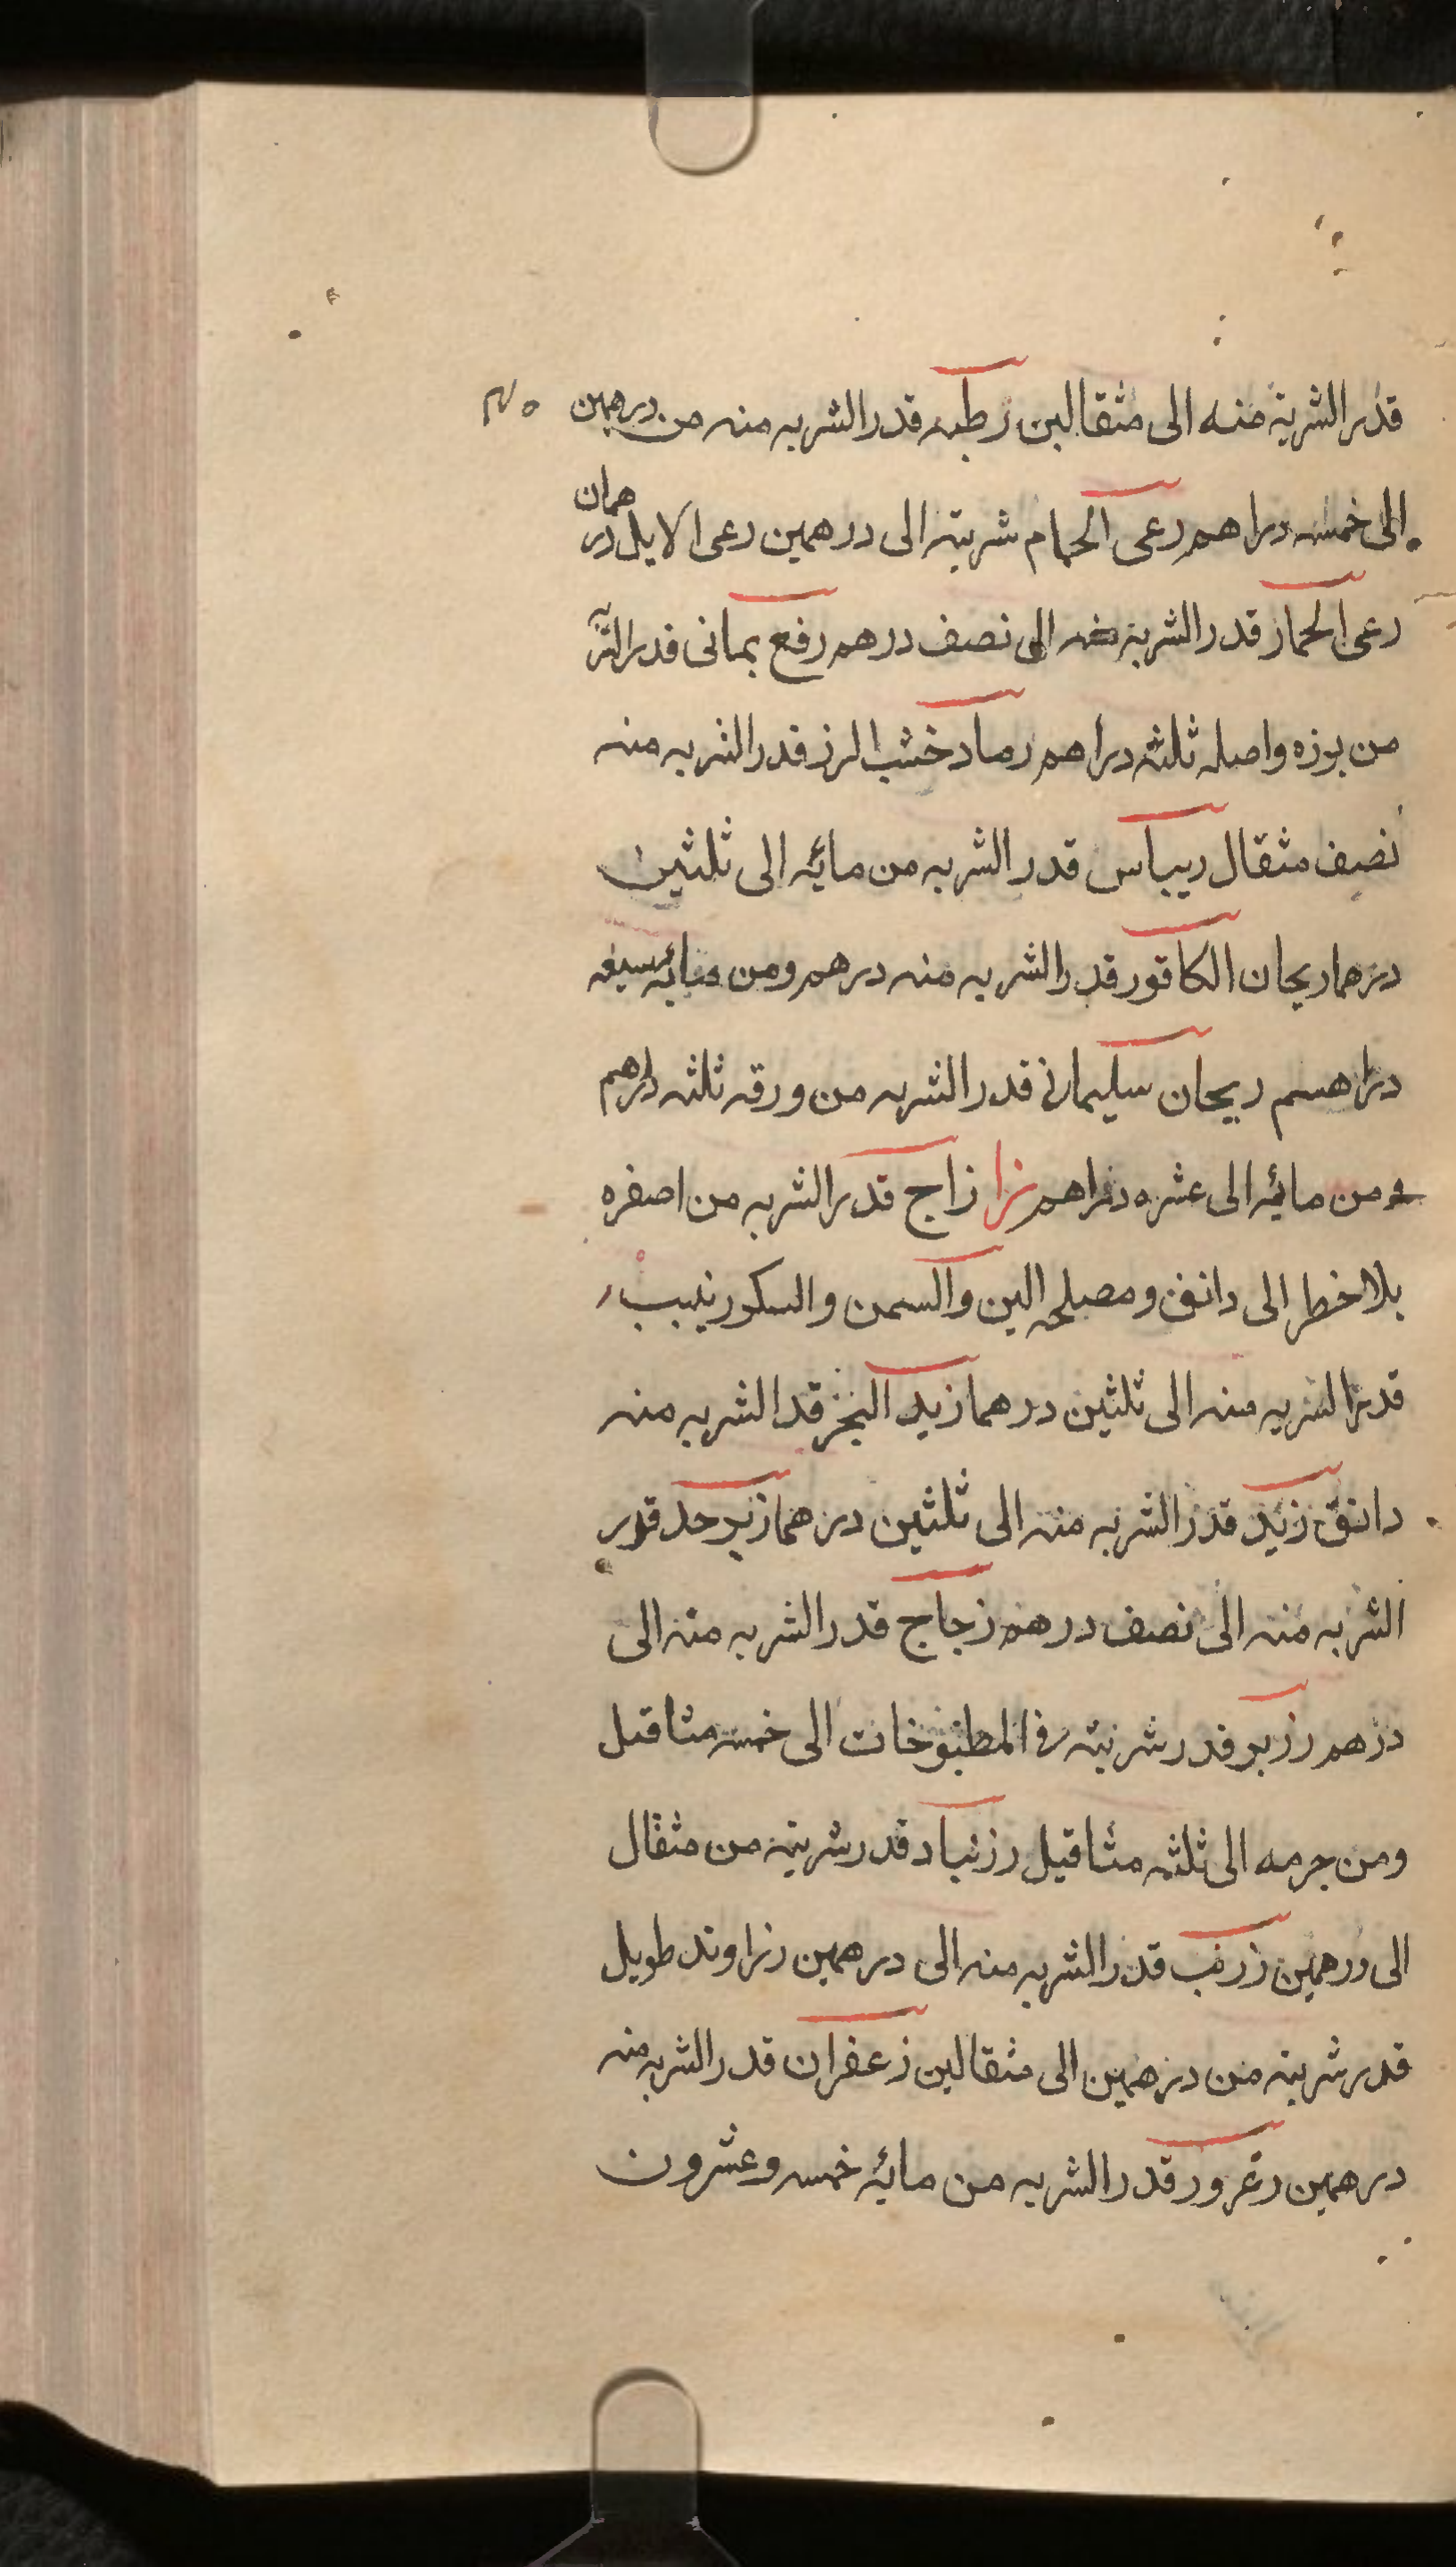 قدر الشربة منه الى مثقالين رطبه قدر الشربه منه من درهمين
الى خمسه دراهم رعى الحمام شربته الى درهمين رعى الايل درهمان
رعى الحمار قدر الشربه منه الى نصف درهم رفع يمانى قدر الشربه
من بوزه واصله ثلثه دراهم رماد خشب الرز قدر الشربه منه
نصف مثقال ريباس قدر الشربه من مائه الى ثلثين
درهما ريحان الكافور قدر الشربه منه درهم ومن مائه سبعه
دراهم ريحان سليمانى قدر الشربه من ورقه ثلثه دراهم
ومن مائه الى عشره دراهم زا زاج قدر الشربه من اصفره
بلا خطر الى دانق ومصلحه البن والسمن والسكر زبيب
قدر الشربه منه الى ثلثين درهما زبد البحر قد الشربه منه
دانق زبد قدر الشربه منه الى ثلثين درهما زبرجد قدر
الشربه منه الى نصف درهم زجاج قدر الشربه منه الى
درهم رزير قدر شربته فى المطبوخات الى خمسه مثاقيل
ومن جرمه الى ثلثه مثاقيل رزنباد قدر شربته من مثقال
الى درهمين زرنب قدر الشربه منه الى درهمين زراوند طويل
قدر شربته من درهمين الى مثقالين زعفران قدر الشربه منه
درهمين زعرور قدر الشربه من مائه خمسه وعشرون